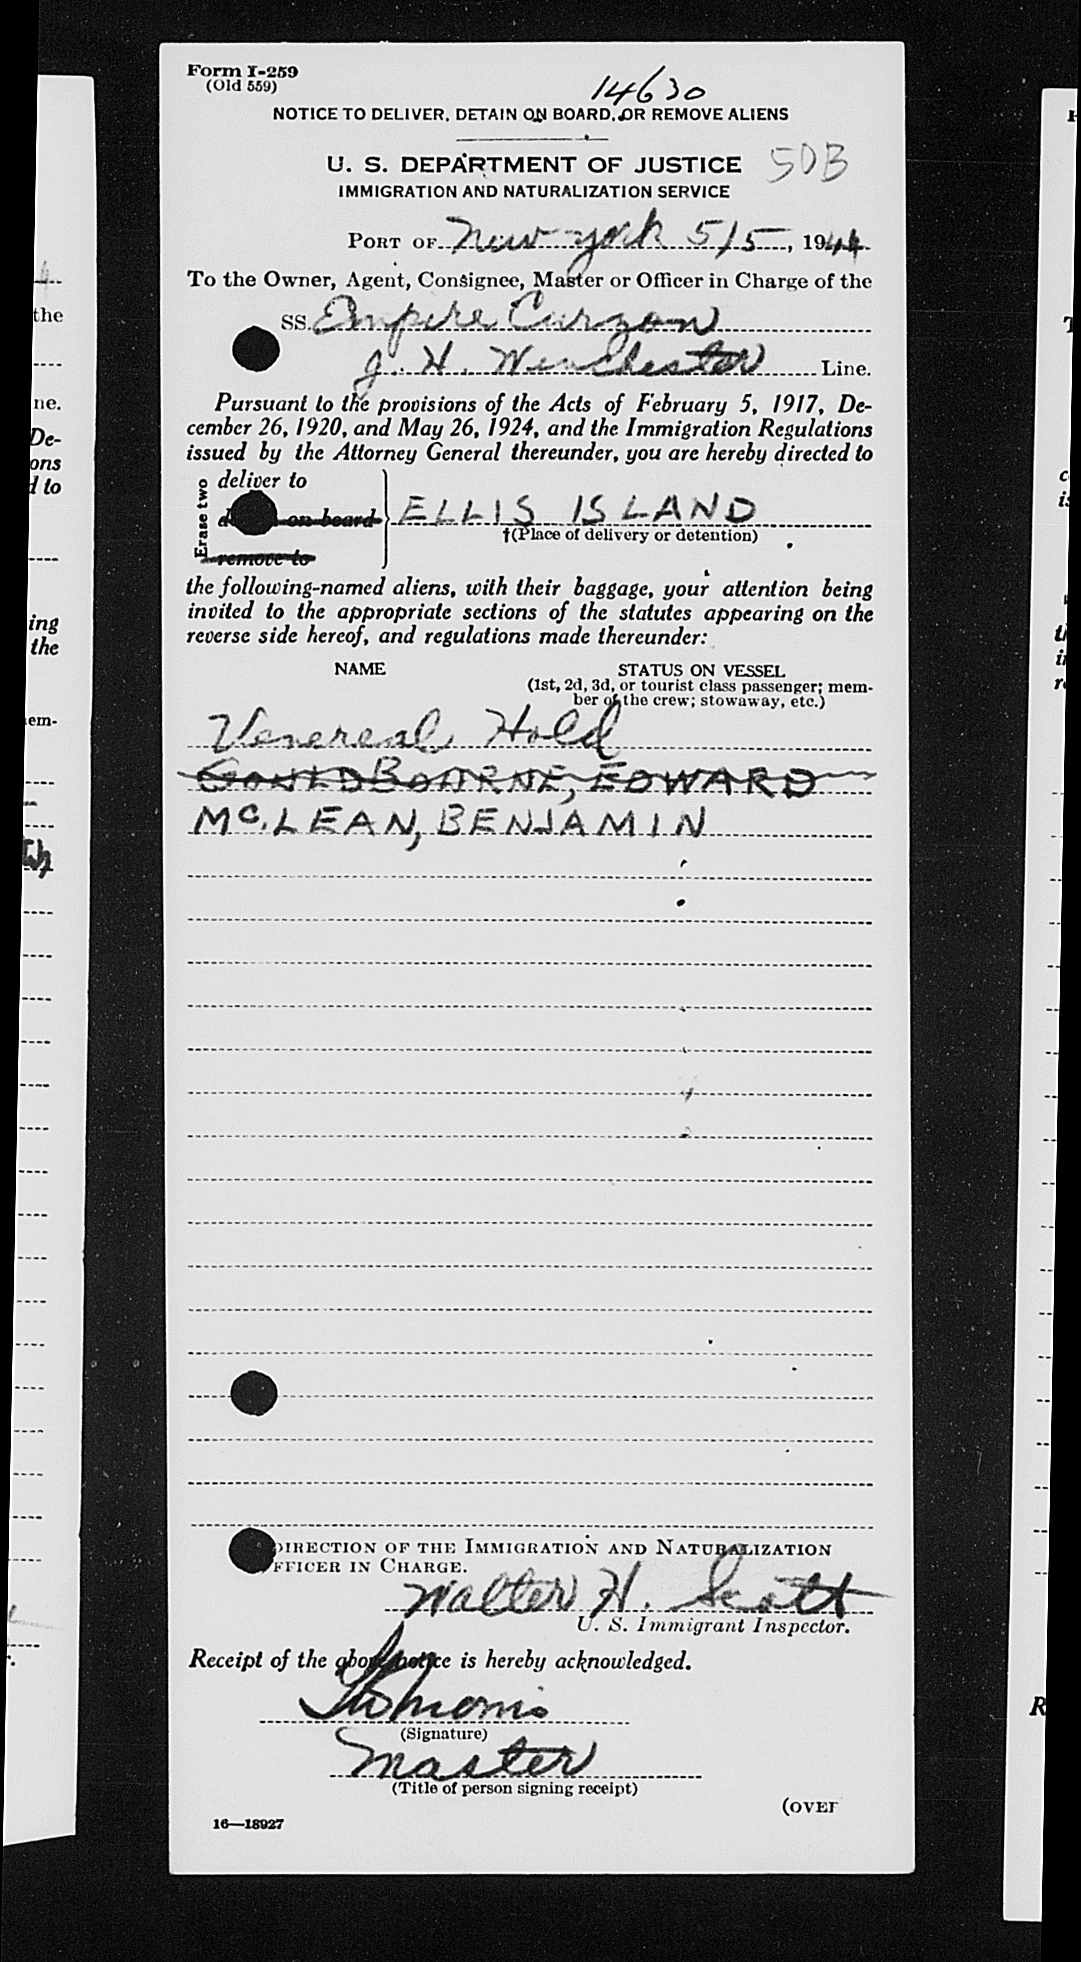 Form I-259
(Old 559)
14630
NOTICE TO DELIVER, DETAIN ON BOARD, OR REMOVE ALIENS
U. S. DEPARTMENT OF JUSTICE
50B
IMMIGRATION AND NATURALIZATION SERVICE
PORT OF New York 5/5, 1944
To the Owner, Agent, Consignee, Master or Officer in Charge of the
SS. Empire Curzon
J. H. Winchester Line.
Pursuant to the provisions of the Acts of February 5, 1917, De-
cember 26, 1920, and May 26, 1924, and the Immigration Regulations
issued by the Attorney General thereunder, you are hereby directed to
Erase two
deliver to
on board
remove to
ELLIS ISLAND
†(Place of delivery or detention)
the following-named aliens, with their baggage, your attention being
invited to the appropriate sections of the statutes appearing on the
reverse side hereof, and regulations made thereunder:
NAME
STATUS ON VESSEL
(1st, 2d, 3d, or tourist class passenger; mem-
ber of the crew; stowaway, etc.)
Venereal Hold
GOULDBOURNE, EDWARD
McLEAN, BENJAMIN
DIRECTION OF THE IMMIGRATION AND NATURALIZATION
OFFICER IN CHARGE.
Walter H. Scott
U. S. Immigrant Inspector.
Receipt of the above notice is hereby acknowledged.
(Signature)
Master
(Title of person signing receipt)
(OVER
16—18927
the
ne.
De-
ons
d to
ing
the
em-